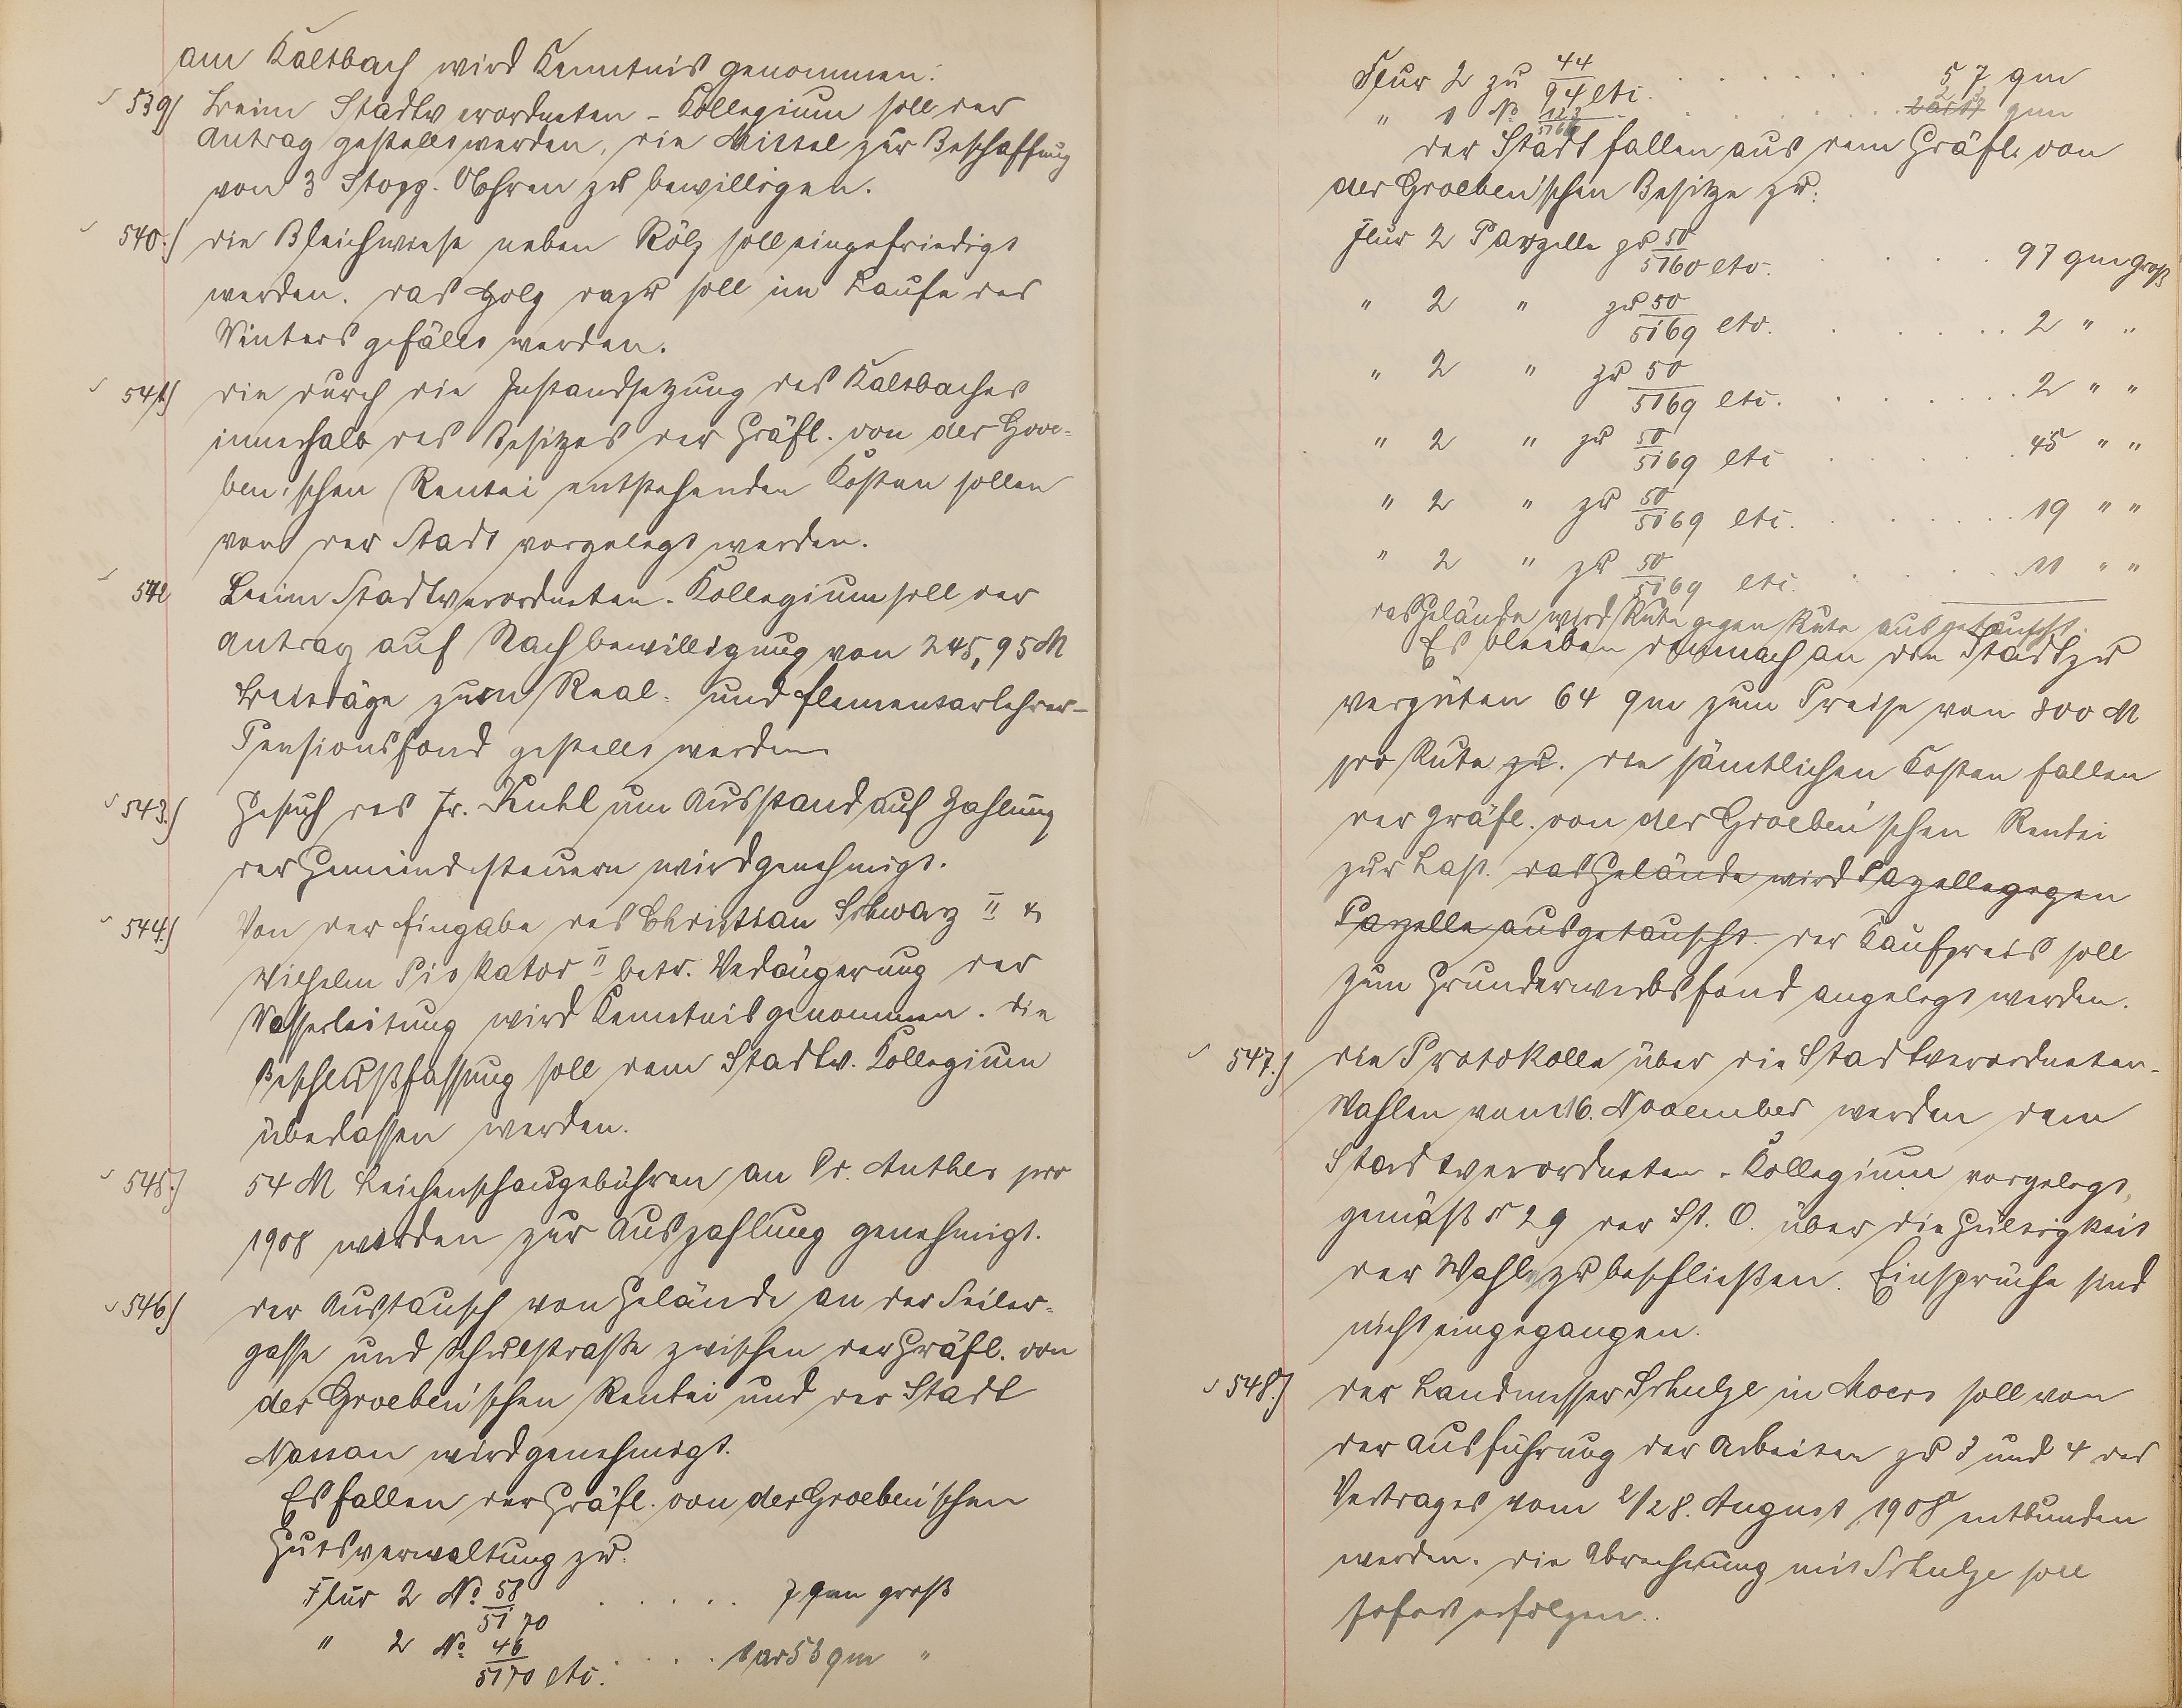 am Kaltbach wird Kenntnis genommen.
539) Beim Stadtverordneten-Kollegium soll der
Antrag gestellt werden, die Mittel zur Beschaffung
von 3 Stopp-Uhren zu bewilligen.
540.) Die Bleichwiese neben Kölz soll eingefriedigt
werden. Das Holz dazu soll im Laufe des
Winters gefällt werden.
541.) Die durch die Instandsetzung des Kaltbaches
innerhalb des Besitzes der Gräfl. von der Groe-
ben'schen Rentei entstehenden Kosten sollen
von der Stadt vorgelegt werden.
542 Beim Stadtverordneten-Kollegium soll der
Antrag auf Nachbewilligung von 245,95 M
Beiträge zum Real- und Elementarlehrer-
Pensionsfond gestellt werden
543.) Gesuch des Fr. Kuhl um Ausstand auf Zahlung
der Gemeindesteuern wird genehmigt.
544.) Von der Eingabe des Christian Schwarz II &
Wilhelm Piskator II betr. Verlängerung der
Wasserleitung wird Kenntnis genommen. Die
Beschlußfassung soll dem Stadtv. Kollegium
überlassen werden.
545.) 54 M Leichenschaugebühren an Dr. Anthes pro
1908 werden zur Auszahlung genehmigt.
546) Der Austausch von Gelände an der Seiler-
gasse und Schulstraße zwischen der Gräfl. von
der Groeben'schen Rentei und der Stadt
Nassau wird genehmigt.
Es fallen der Gräfl. von der Groeben'schen
Gutsverwaltung zu:
Flur 2 No 58/5170 . . . . . 7 qm groß
" 2 No 46/5170 etc. . . . . 1 ar 53 qm "
Flur 2 zu 44/94 etc. . . . . . 57 qm
" 1 No 123/5166 . . . . . 2 ar 17 qm
der Stadt fallen aus dem Gräfl. von
der Groeben'schen Besitze zu:
Flur 2 Parzelle zu 50/5160 etc. . . . . 97 qm groß
" 2 " zu 50/5169 etc. . . . . 2 " "
" 2 " zu 50/5169 etc. . . . . 2 " "
" 2 " zu 50/5169 etc . . . . 45 " "
" 2 " zu 50/5169 etc. . . . . 19 " "
" 2 " zu 50/5169 etc. . . . . 11 " "
das Gelände wird Rute gegen Rute ausgetauscht.
Es bleiben demnach an die Stadt zu
vergüten 64 qm zum Preise von 800 M
pro Rute zu. Die sämtlichen Kosten fallen
der Gräfl. von der Groeben'schen Rentei
zur Last. Das Gelände wird Parzelle gegen
Parzelle ausgetauscht. Der Kaufpreis soll
zum Grunderwerbsfond angelegt werden.
547.) Die Protokolle über die Stadtverordneten-
Wahlen vom 16. November werden dem
Stadtverordneten-Kollegium vorgelegt,
gemäß § 29 der St. O. über die Gültigkeit
der Wahl zu beschließen. Einsprüche sind
nicht eingegangen.
548.) Der Landmesser Schulze in Moers soll von
der Ausführung der Arbeiten zu 3 und 4 des
Vertrages vom 2/28. August 1908 entbunden
werden. Die Abrechnung mit Schulze soll
sofort erfolgen.